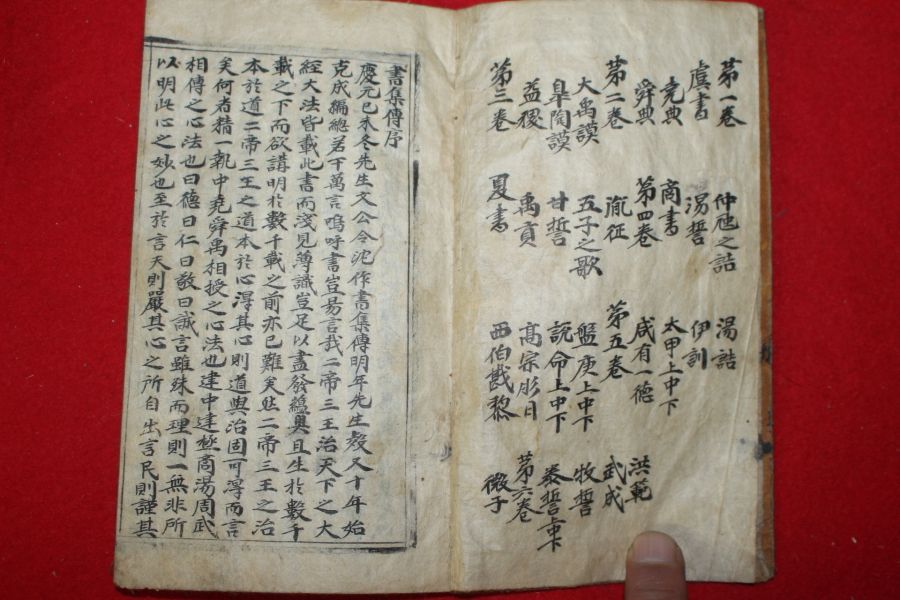 第一卷
虞書
堯典
舜典
第二卷
大禹謨
皐陶謨
益稷
第三卷
夏書
禹貢
甘誓
五子之歌
胤征
第四卷
商書
湯誓
仲虺之誥
湯誥
伊訓
太甲上中下
咸有一德
第五卷
盤庚上中下
說命上中下
高宗肜日
西伯戡黎
微子
第六卷
泰誓上中下
牧誓
武成
洪範
書集傳序
慶元己未冬先生文公令沈作書集傳明年先生歿又十年始
克成編總若干萬言嗚呼書豈易言哉二帝三王治天下之大
經大法皆載此書而淺見薄識豈足以盡發蘊奧且生於數千
載之下而欲講明於數千載之前亦已難矣然二帝三王之治
本於道二帝三王之道本於心得其心則道與治固可得而言
矣何者精一執中堯舜禹相授之心法也建中建極商湯周武
相傳之心法也曰德曰仁曰敬曰誠言雖殊而理則一無非所
以明此心之妙也至於言天則嚴其心之所自出言民則謹其